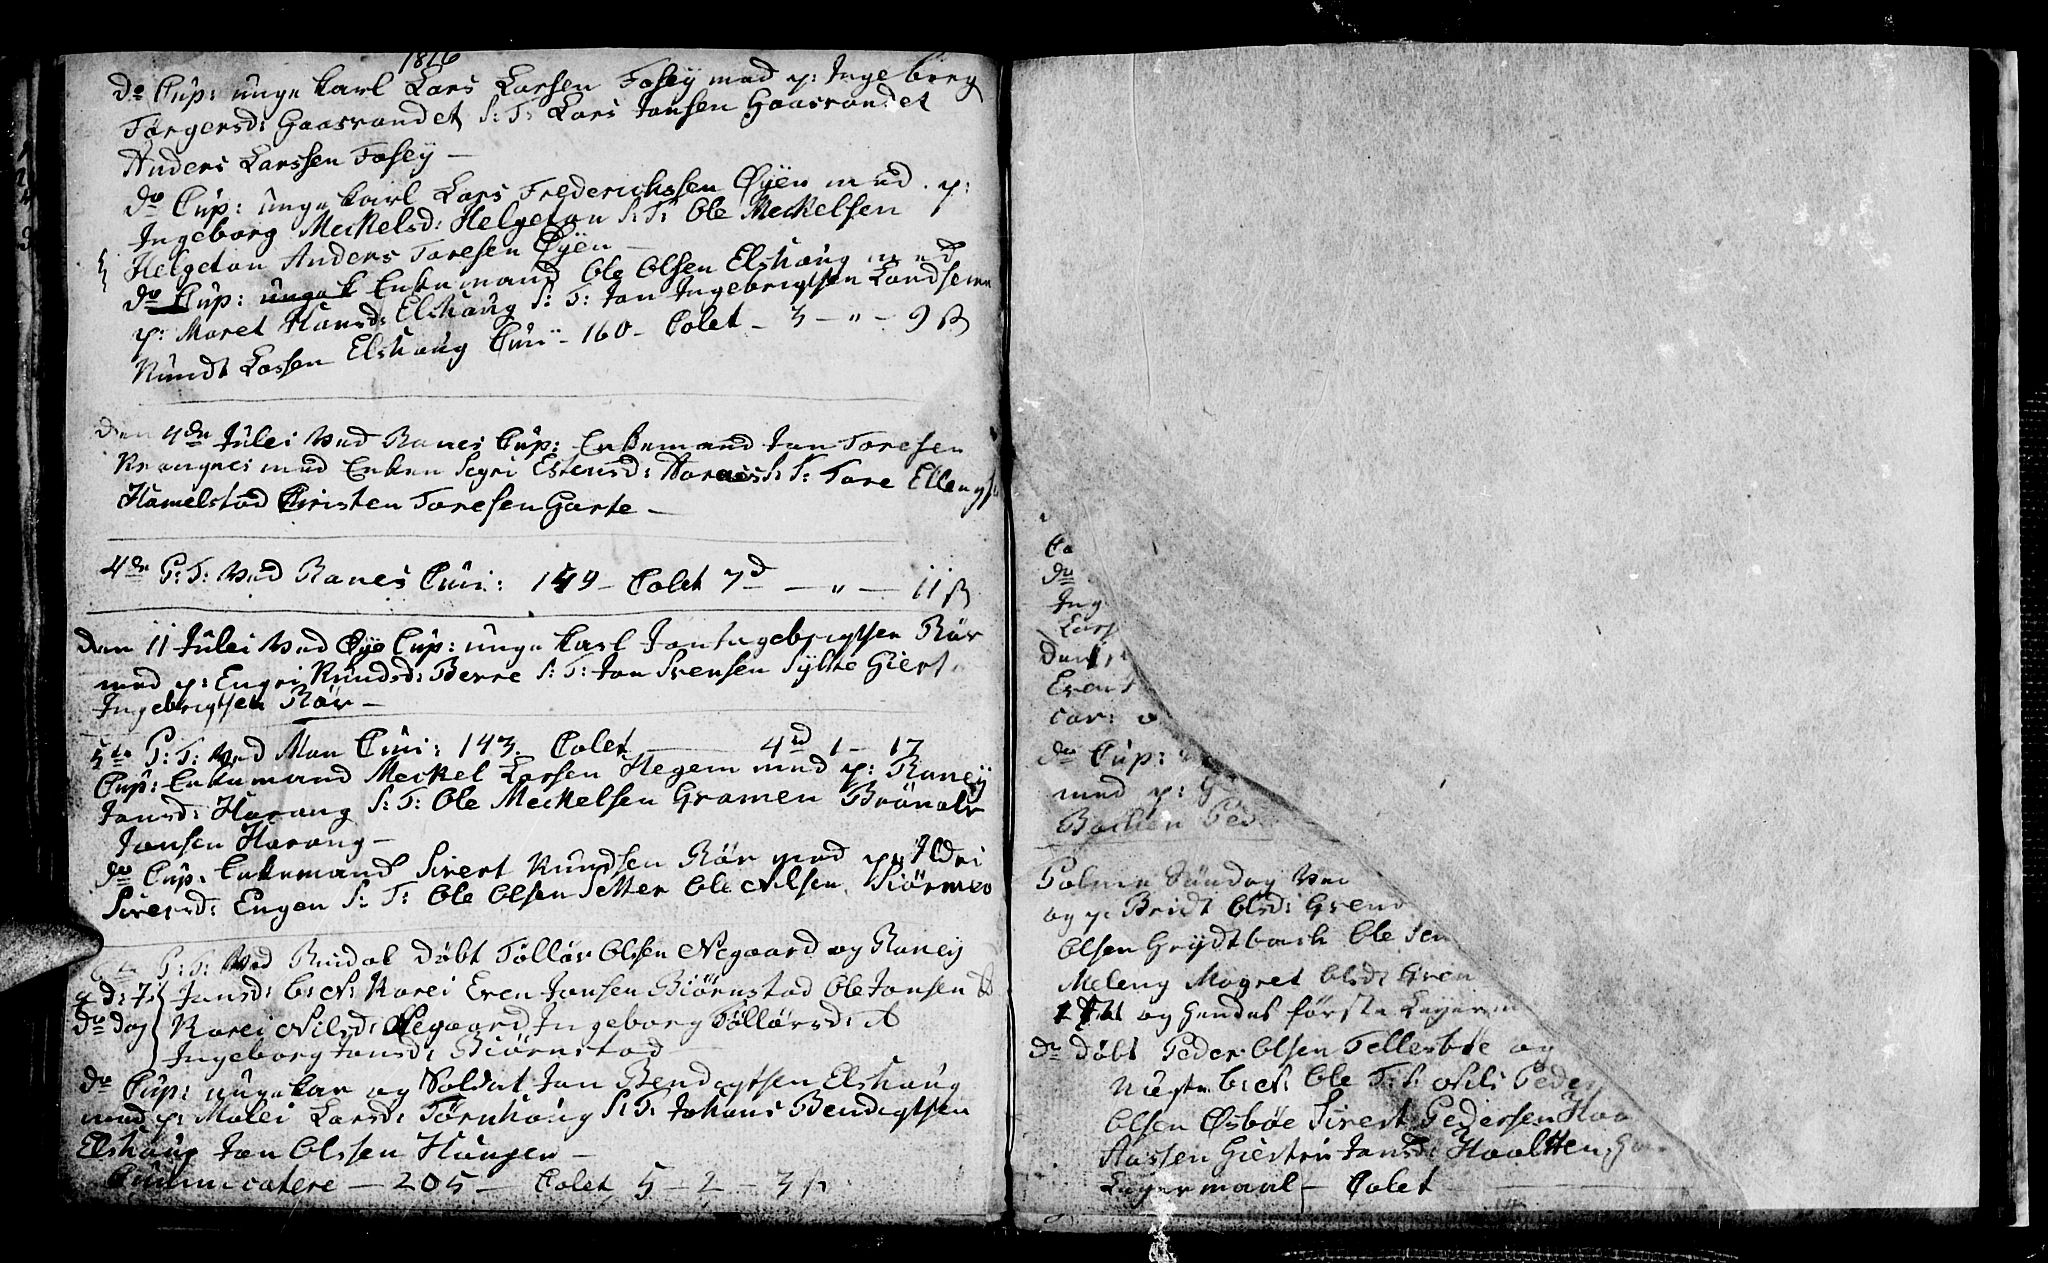 1816
do Cup: unge karl Lars Larsen Foseÿ med p: Ingeborg
Torgersd: Gaasvandet S: T: Lars Jonsen Gaasvandet
Anders Larssen Foseÿ —
do Cup: unge karl Lars Frederichssen Øÿen med p:
Ingeborg Meckelsd: Helgeton S: T: Ole Meckelsen
Helgeton Anders Toresen Øÿen —
do Cup: unge k Enkemand Ole Olsen Elshaug med
p: Maret Hansd: Elshaug S: T: Jon Ingebrigtsen Landsem
Knudt Lassen Elshaug Cuni - 160 - Colet - 3 - " - 9 ß
Den 4de Julei ved Ranes Cup: Enkemand Jon Toresen
Krangnes med Enken Segri Estensd: S: T: Tore Ellengs
Hamelstad Christen Toresen Garte —
4de P: T: ved Ranes Cuni: 149 - Colet 7d — " — 11 ß
Den 11 Julei ved Øÿe Cup: unge karl Jon Ingebrigtsen Rör
med p: Engri Knudsd: Berre S: T: Jon Svensen Sÿlte Giert
Ingebrigtsen Rör —
5te P: T: ved Mou Cuni: 143 Colet — 4d 1 - 17
Cup: Enkemand Meckel Larsen Hegem med p: Raneÿ
Jonsd: Harang S: T: Ole Meckelsen Gramen Brönolv
Jonsen Harang —
do Cup: Enkemand Sivert Knudsen Rör med p: Ildri
Siversd: Engen S: T: Ole Olsen Setter Ole Nilsen
P: T: ved Rindal Döbt Töllöv Olsen Negaard og Raneÿ
Jonsd: b: N: Karei Even Jonsen Biörnstad Ole Jonsen
do dag Karei Nilsd: Negaard Ingeborg Töllövsd:
Ingeborg Jonsd: Biörnstad
do Cup: unge kar og Soldat Jon Bendigtsen Elshaug
med p: Malei Larsd: Törnhaug S: T: Johans Bendigtsen
Elshaug Jon Olssen Haugen —
Cummicatere — 205 — Colet 5 - 2 - 3 ß
Co
do
Ing
Lars
Den
Even
cor:
do Cup:
med p: G
Bachen Ped
Palme Söndag ved
og p: Bridt Olsd: Gren
Olsen Grÿdtbach Ole
Meleng Magret Olsd: Gren
og Hendes förste Leÿer
do Döbt Peder Olsen Tellesböe og
b: N: Ole T: S: Nils Peder
Olsen Øsböe Sivert Pedersen
Aassen Giertru Jonsd:
Leÿermaal — Colet